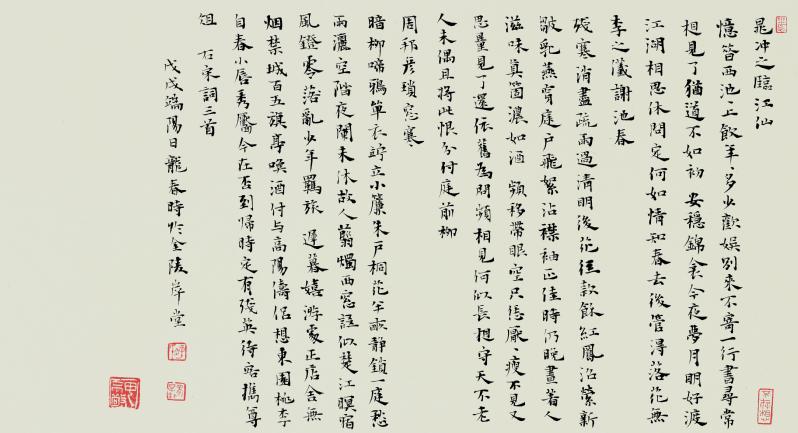 晁冲之臨江仙
憶昔西池池上飲年年多少歡娛別來不寄一行書尋常
相見了猶道不如初安穩錦衾今夜夢月明好渡
江湖相思休問定何如情知春去後管得落花無
李之儀謝池春
殘寒消盡疏雨過清明後花徑款餘紅風沼縈新
皺乳燕穿庭戶飛絮沾襟袖正佳時仍晚晝著人
滋味真箇濃如酒頻移帶眼空只恁厭厭瘦不見又
思量見了還依舊為問頻相見何似長相守天不老
人未偶且將此恨分付庭前柳
周邦彥瑣窗寒
暗柳啼鴉單衣竚立小簾朱戶桐花半畝靜鎖一庭愁
雨灑空階夜闌未休故人剪燭西窗語似楚江暝宿
風鐙零落亂少年羈旅遲暮嬉游處正店舍無
烟禁城百五旗亭喚酒付與高陽儔侶想東園桃李
自春小唇秀靨今在否到歸時定有殘英待客攜尊
俎 右宋詞三首
戊戌端陽日龍春時於金陵岸堂